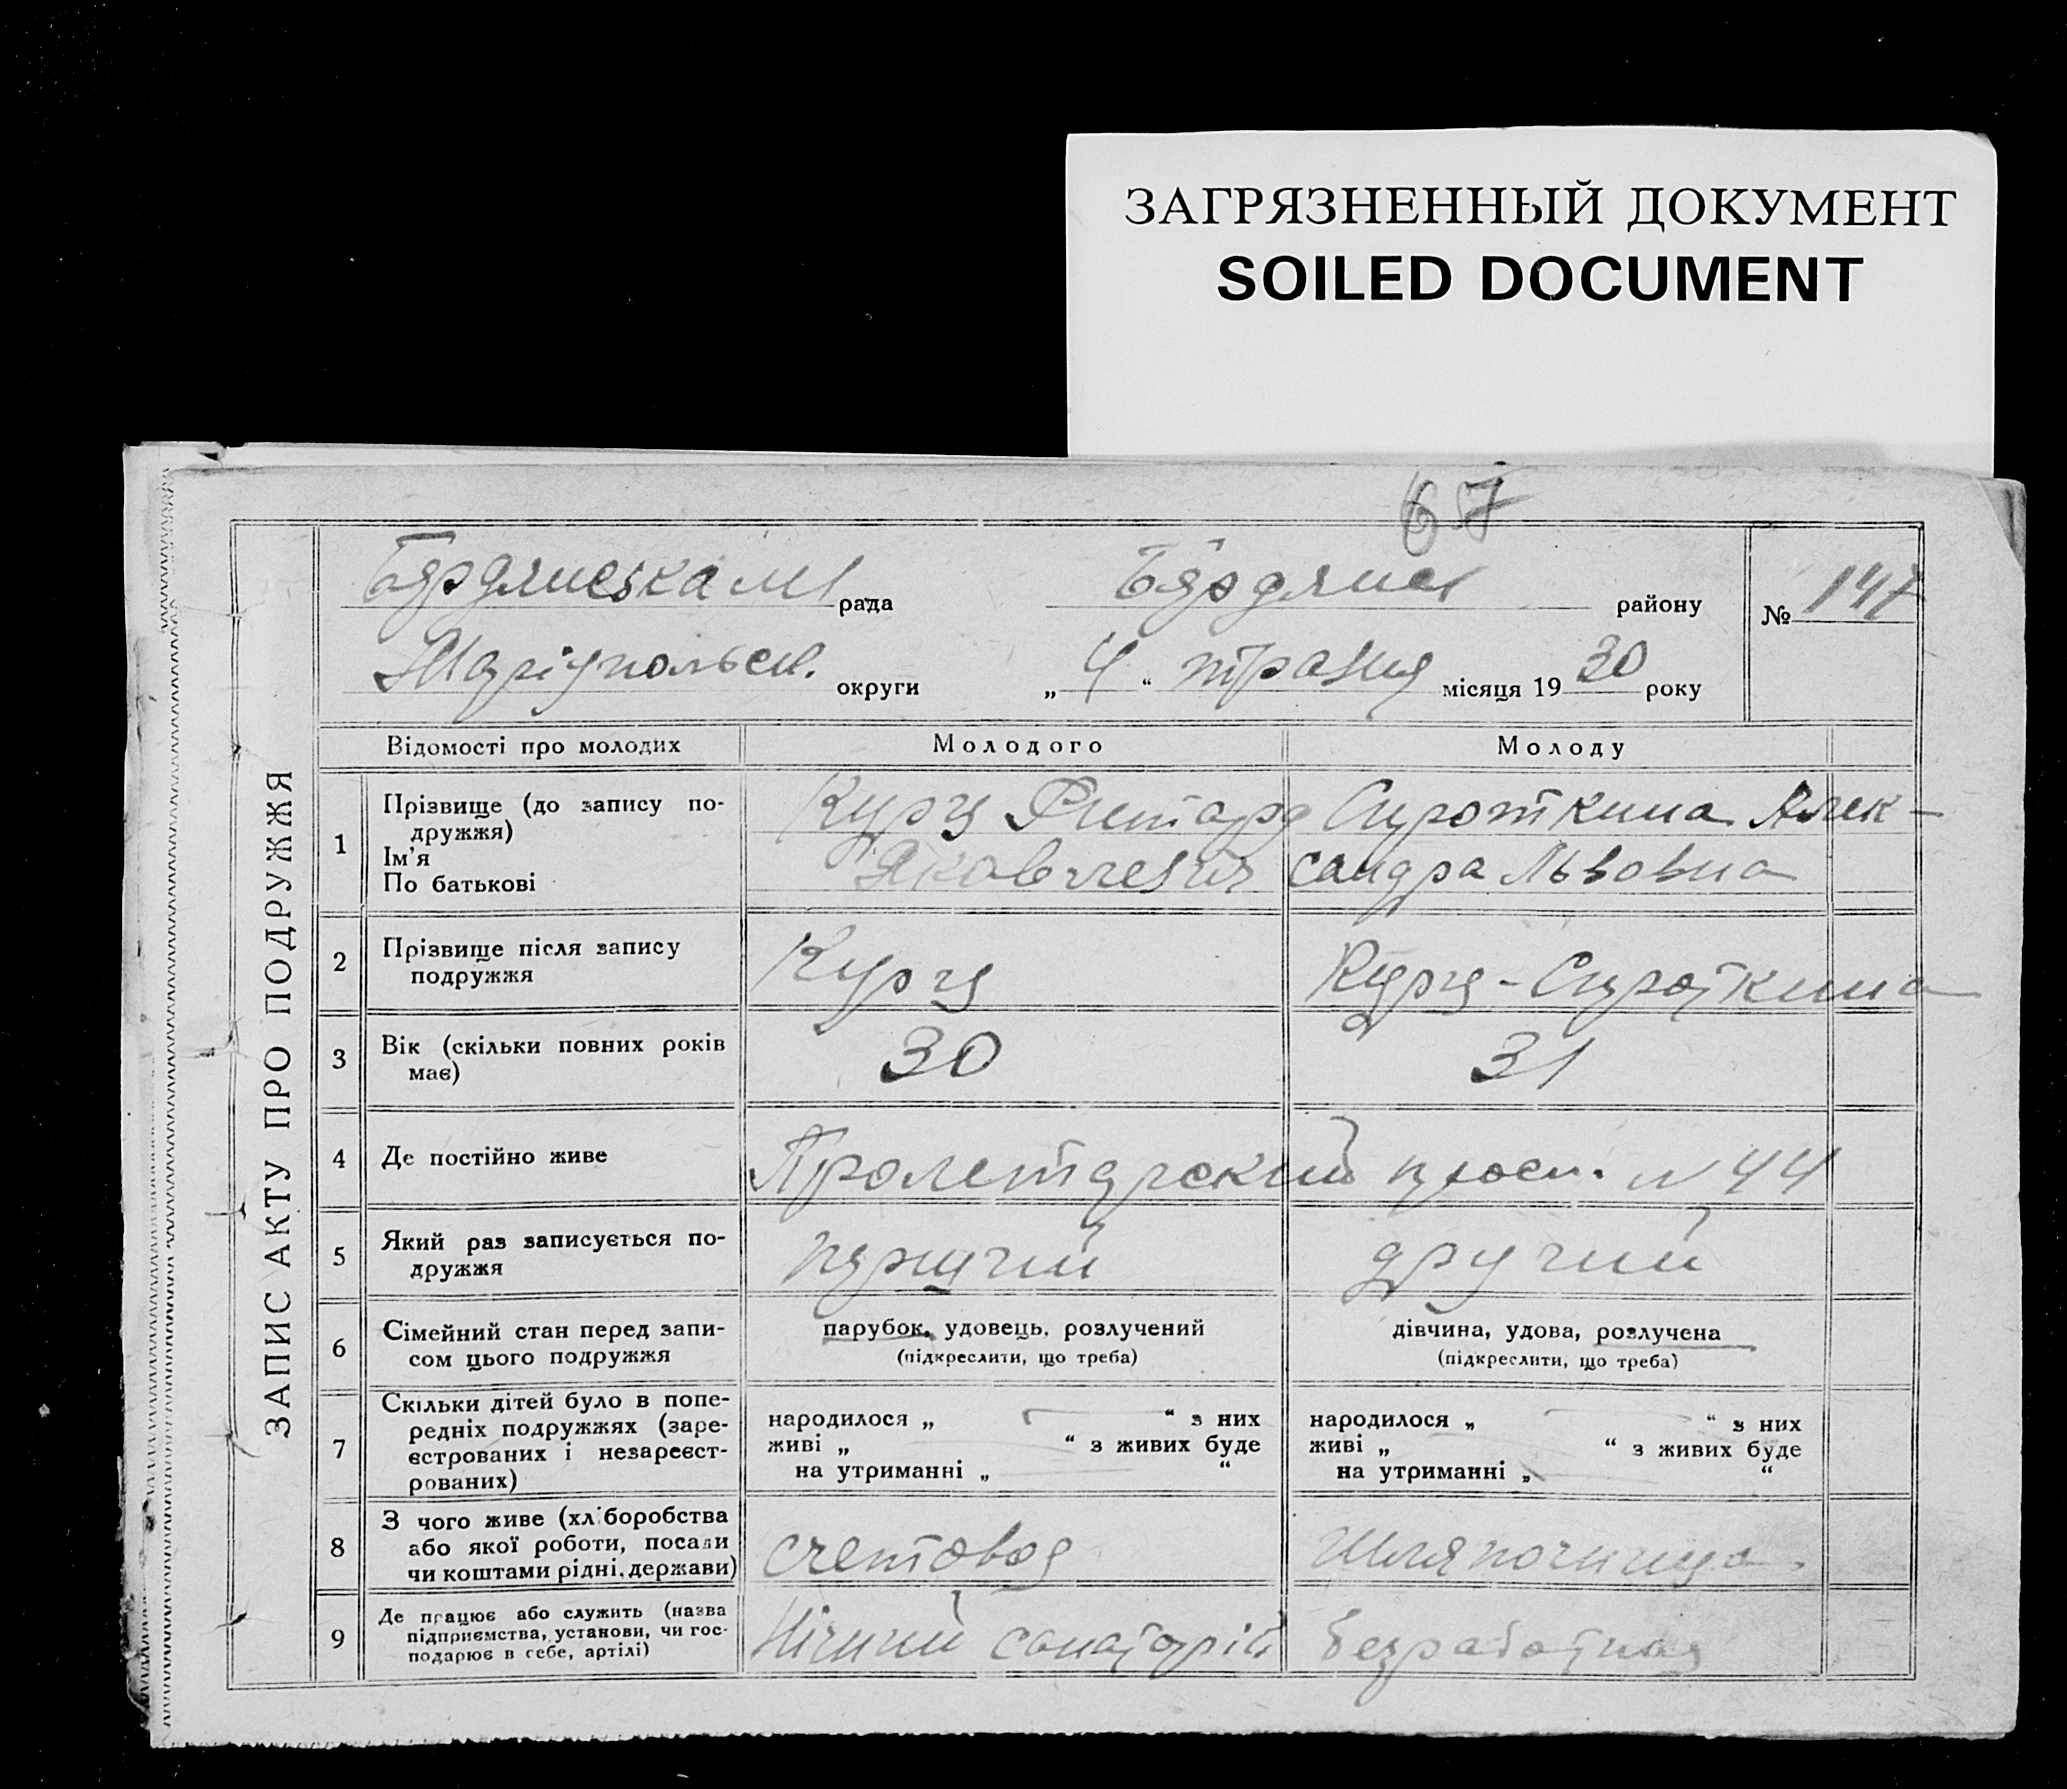 ЗАГРЯЗНЕННЫЙ ДОКУМЕНТ
SOILED DOCUMENT
67
Бердянська м. рада Бердянськ району № 147
Маріупольськ. округи „ 4 “ травня місяця 19 30 року
ЗАПИС АКТУ ПРО ПОДРУЖЖЯ
Відомості про молодих Молодого Молоду
1 Прізвище (до запису по-
дружжя)
Ім'я
По батькові
Курц Рихард
Яковлевич
Сироткина Алек-
сандра Львовна
2 Прізвище після запису
подружжя
Курц
Курц-Сироткина
3 Вік (скільки повних років
має)
30
31
4 Де постійно живе
Пролетарский просп. № 44
5 Який раз записується по-
дружжя
перший
другий
6 Сімейний стан перед запи-
сом цього подружжя
парубок, удовець, розлучений
(підкреслити, що треба)
дівчина, удова, розлучена
(підкреслити, що треба)
7 Скільки дітей було в попе-
редніх подружжях (заре-
єстрованих і незареєст-
рованих)
народилося „ — “ з них
живі „ — “ з живих буде
на утриманні „ — “
народилося „ — “ з них
живі „ — “ з живих буде
на утриманні „ — “
8 З чого живе (хліборобства
або якої роботи, посади
чи коштами рідні, держави)
счетовод
Шляпочница.
9 Де працює або служить (назва
підприємства, установи, чи гос-
подарює в себе, артілі)
Нічний санаторій
безработная